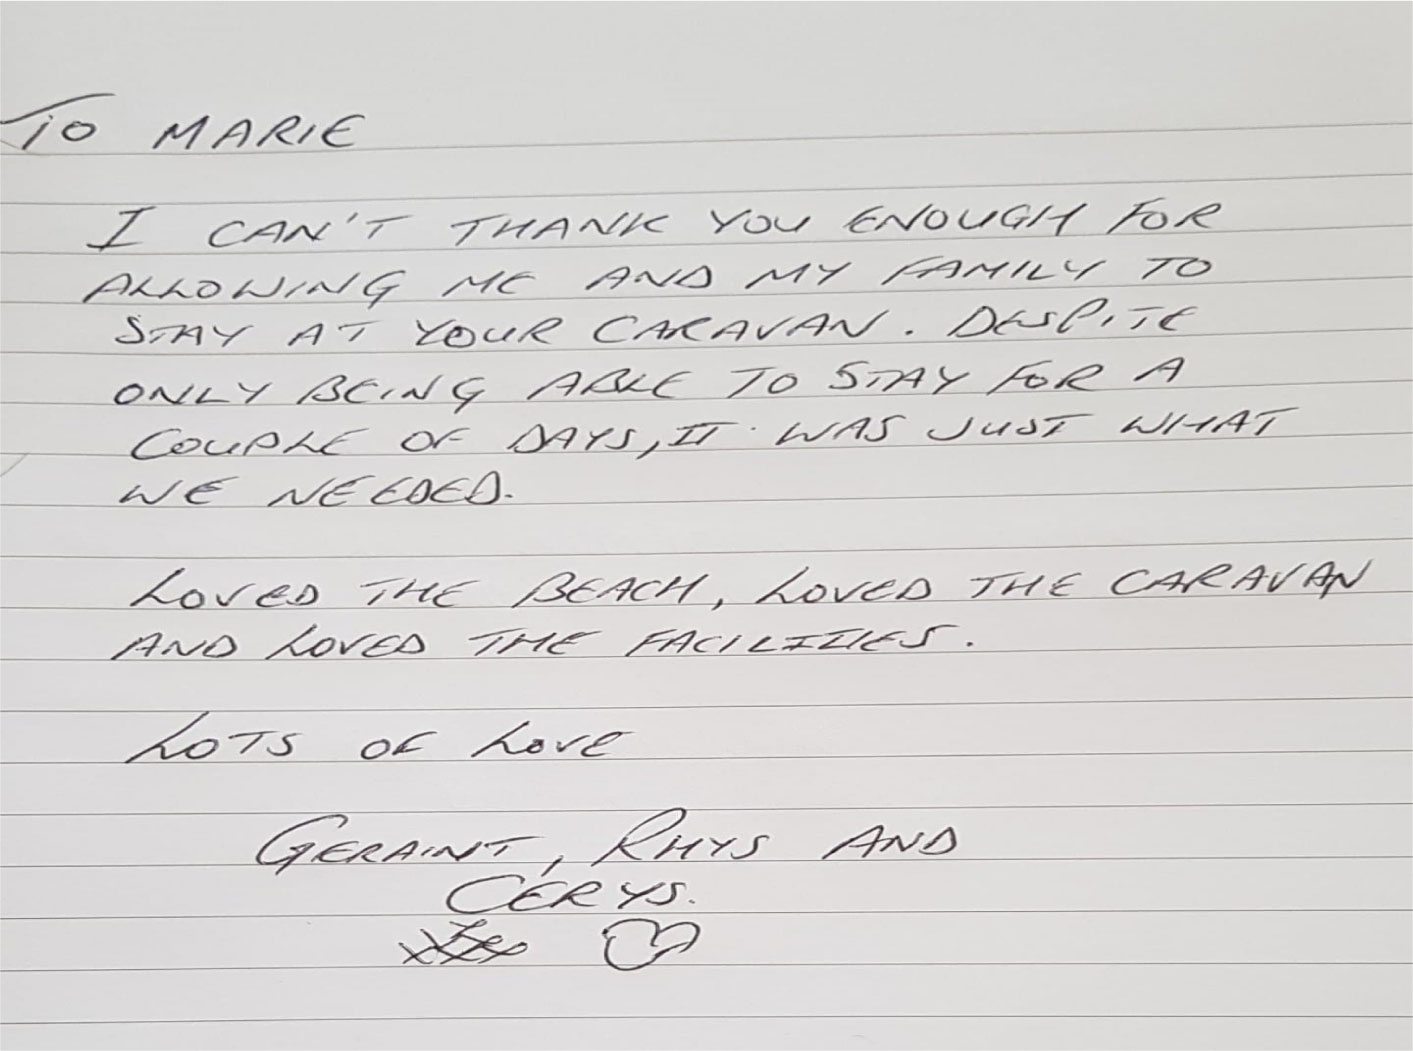 TO MARIE
I CAN'T THANK YOU ENOUGH FOR
ALLOWING ME AND MY FAMILY TO
STAY AT YOUR CARAVAN. DESPITE
ONLY BEING ABLE TO STAY FOR A
COUPLE OF DAYS, IT WAS JUST WHAT
WE NEEDED.
LOVED THE BEACH, LOVED THE CARAVAN
AND LOVED THE FACILITIES.
LOTS OF LOVE
GERAINT, RHYS AND
CERYS.